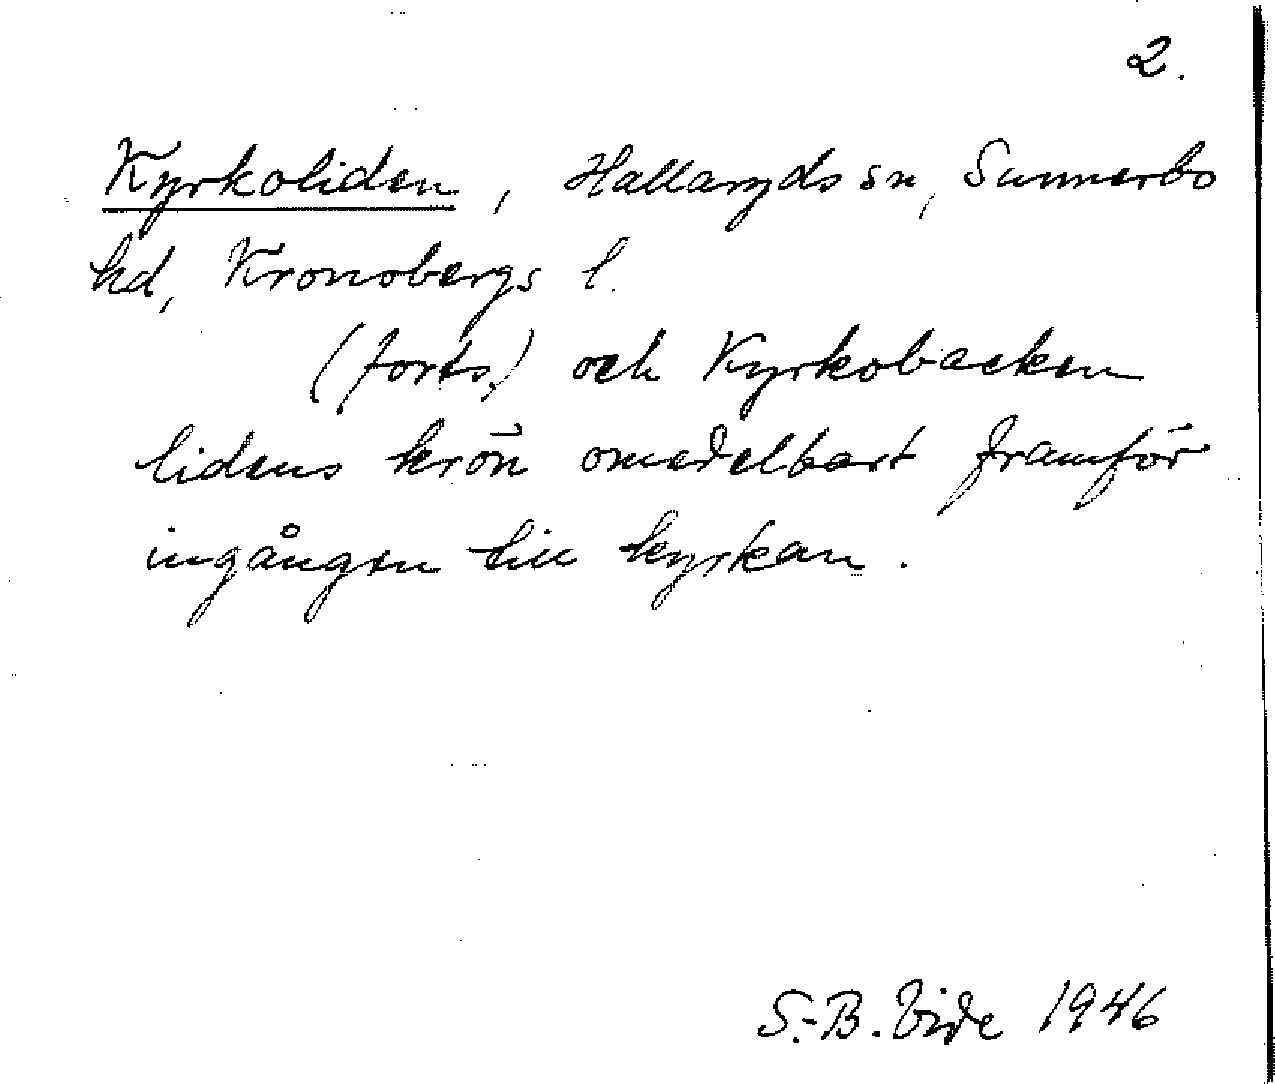 2.
Kyrkoliden, Hallaryds sn, Sunnerbo
hd, Kronobergs l.
(forts.) och Kyrkobacken
lidens krön omedelbart framför
ingången till kyrkan.
S.-B. Vide 1946